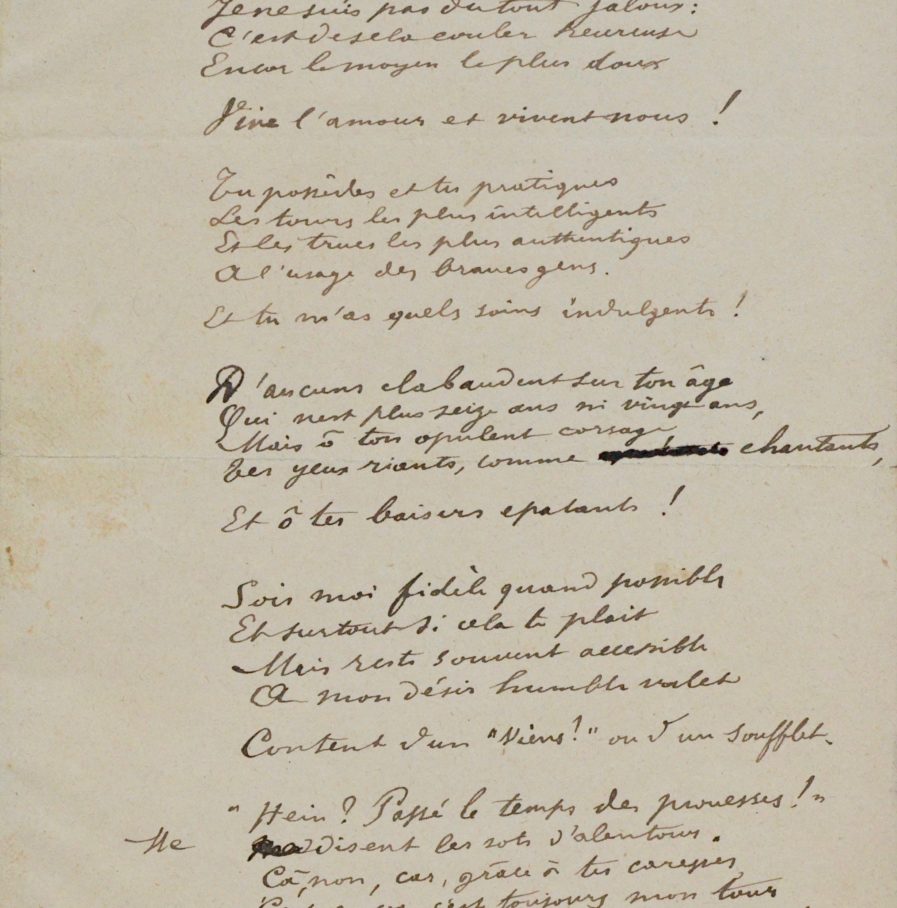 Je ne suis pas du tout jaloux :
C'est de cela couler heureuse
Encor le moyen le plus doux
Vive l'amour et vivent nous !
Tu possèdes et tu pratiques
Les tours les plus intelligents
Et les trucs les plus authentiques
A l'usage des braves gens.
Et tu m'as quels soins indulgents !
D'aucuns clabaudent sur ton âge
Qui n'est plus seize ans ni vingt ans,
Mais ô ton opulent corsage
Tes yeux riants, comme chantants,
Et ô tes baisers epatants !
Sois moi fidèle quand possible
Et surtout si cela te plait
Mais reste souvent accessible
A mon désir humble valet
Content d'un "Viens !" ou d'un soufflet.
"Hein ? Passé le temps des prouesses !"
Me disent les sots d'alentour.
Ça, non, car, grâce à tes caresses
c'est toujours mon tour